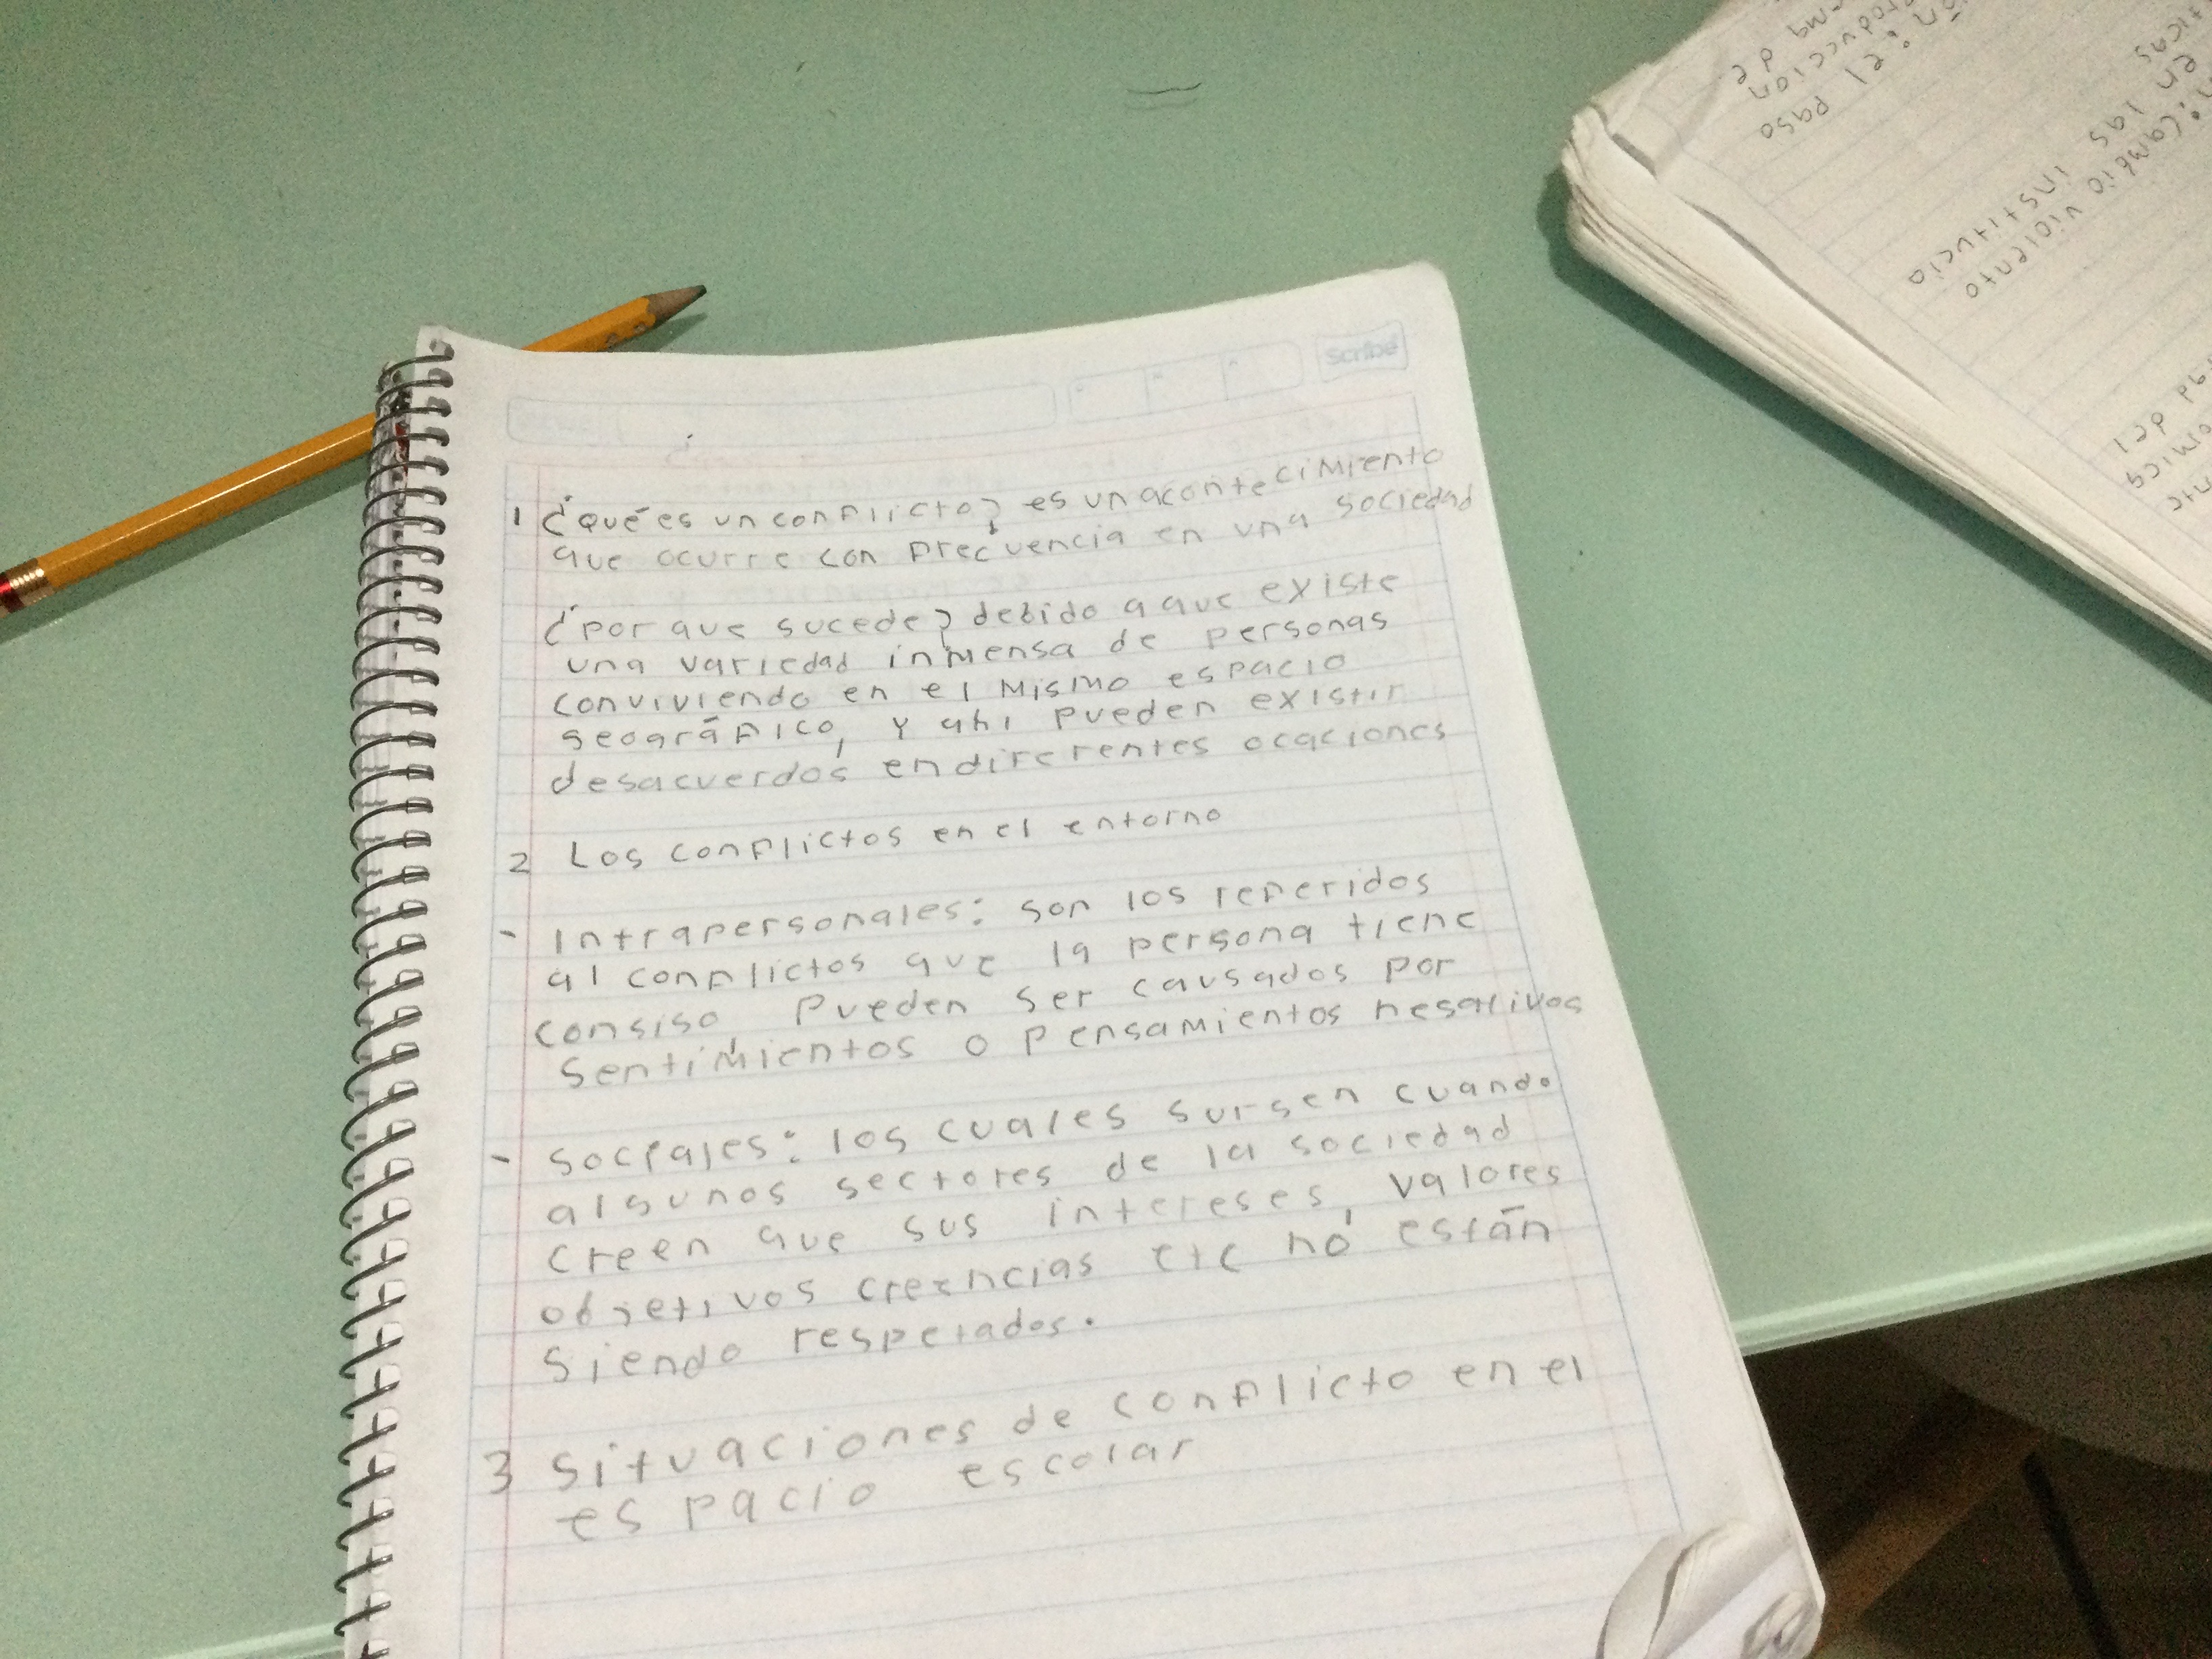 scribe
1 ¿qué es un conflicto? es un acontecimiento
que ocurre con frecuencia en una sociedad
¿por que sucede? debido a que existe
una variedad inmensa de personas
conviviendo en el mismo espacio
geográfico, y ahi pueden existir
desacuerdos en diferentes ocaciones
2 Los conflictos en el entorno
- Intrapersonales: son los referidos
al conflictos que la persona tiene
consigo, Pueden ser causados por
sentimientos o pensamientos negativos
- sociales: los cuales surgen cuando
algunos sectores de la sociedad
creen que sus intereses, valores
objetivos creencias etc no están
siendo respetados.
3 situaciones de conflicto en el
espacio escolar
el paso
cambio violento
en las institucio